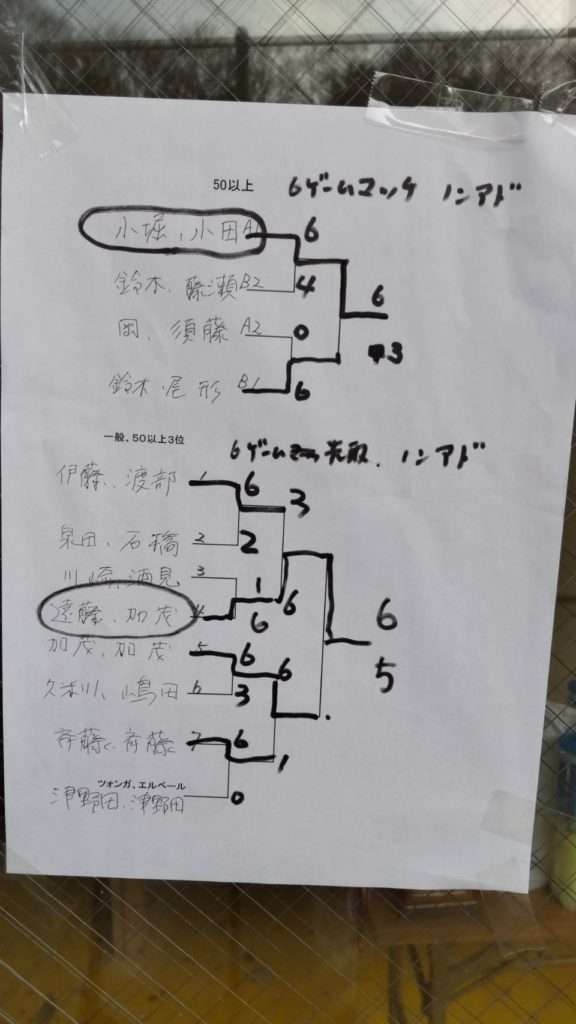 50以上 6ゲームマッチ ノンアド
小堀、小田 A1 6
鈴木、藤瀬 B2 4
6
岡、須藤 A2 0
3
鈴木、尾形 B1 6
一般、50以上3位 6ゲーム 先取、ノンアド
伊藤、渡部 1 6
3
泉田、石橋 2 2
川崎、酒見 3 1
6
遠藤、加茂 4 6
6
5
加茂、加茂 5 6
6
久米川、嶋田 6 3
斉藤、斉藤 7 6
1
ツォンガ、エルベール
津野田、津野田 0